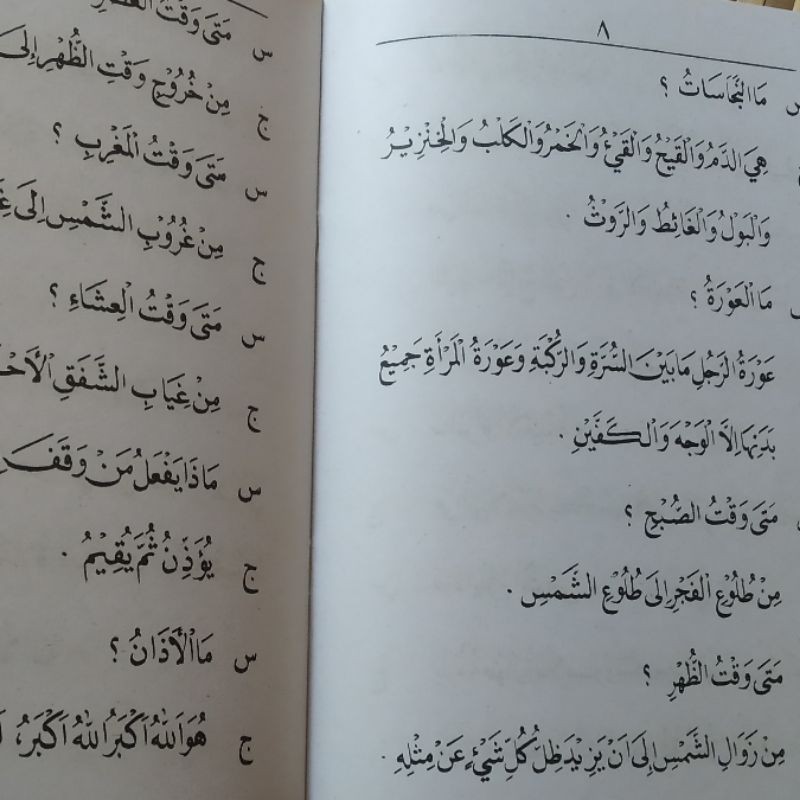 ٨
س مَا النَّجَاسَاتُ ؟
هِيَ الدَّمُ وَالْقَيْحُ وَالْقَيْءُ وَالْخَمْرُ وَالْكَلْبُ وَالْخِنْزِيْرُ
وَالْبَوْلُ وَالْغَائِطُ وَالرَّوْثُ .
مَا الْعَوْرَةُ ؟
عَوْرَةُ الرَّجُلِ مَا بَيْنَ السُّرَّةِ وَالرُّكْبَةِ وَعَوْرَةُ الْمَرْأَةِ جَمِيْعُ
بَدَنِهَا اِلَّا الْوَجْهَ وَالْكَفَّيْنِ .
مَتَى وَقْتُ الصُّبْحِ ؟
مِنْ طُلُوْعِ الْفَجْرِ اِلَى طُلُوْعِ الشَّمْسِ .
مَتَى وَقْتُ الظُّهْرِ ؟
مِنْ زَوَالِ الشَّمْسِ اِلَى اَنْ يَزِيْدَ ظِلُّ كُلِّ شَيْءٍ عَنْ مِثْلِهِ .
س مَتَى وَقْتُ
ج مِنْ خُرُوْجِ وَقْتِ الظُّهْرِ اِلَى
س مَتَى وَقْتُ الْمَغْرِبِ ؟
ج مِنْ غُرُوْبِ الشَّمْسِ اِلَى
س مَتَى وَقْتُ الْعِشَاءِ ؟
ج مِنْ غِيَابِ الشَّفَقِ
س مَاذَا يَفْعَلُ مَنْ وَقَفَ
ج يُؤَذِّنُ ثُمَّ يُقِيْمُ .
س مَا الْأَذَانُ ؟
ج هُوَ اَللّٰهُ اَكْبَرُ اَللّٰهُ اَكْبَرُ،